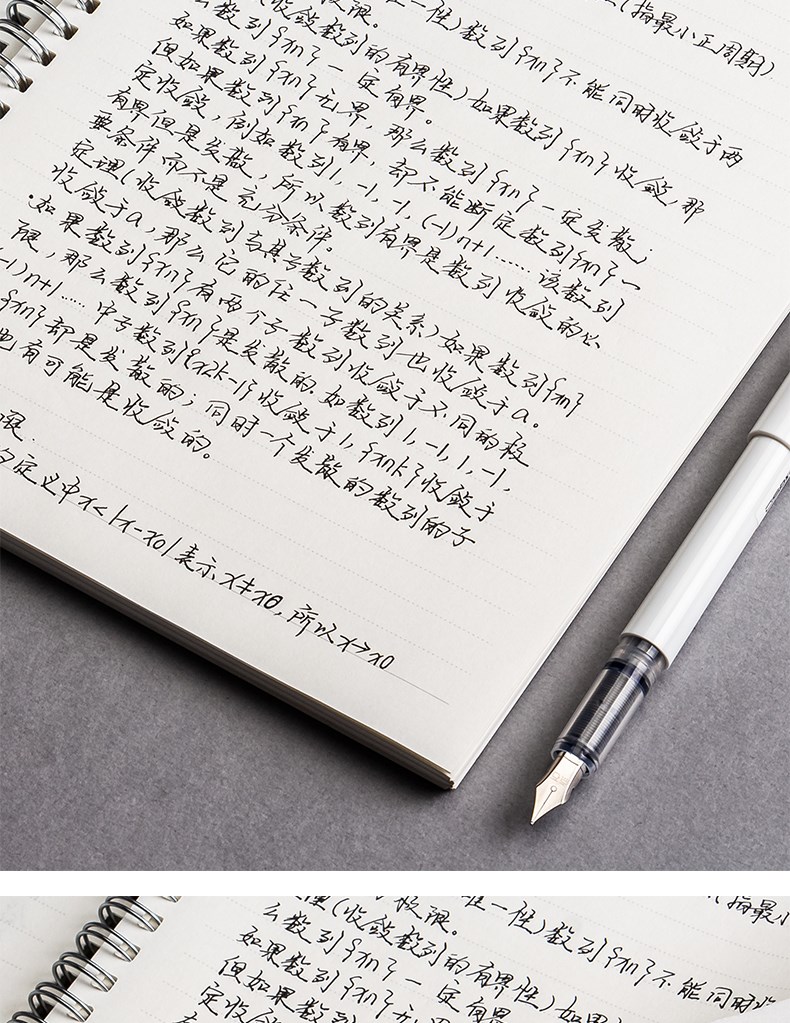 (指最小正周期)
性)数列{xn}不能同时收敛于两
极限。
(收敛数列的有界性)如果数列{xn}收敛,那
么数列{xn}一定有界。
如果数列{xn}无界,那么数列{xn}一定发散;
但如果数列{xn}有界,却不能断定数列{xn}一
定收敛,例如数列1,-1,-1,(-1)n+1……该数列
有界但是发散,所以数列有界是数列收敛的必
要条件而不是充分条件。
定理(收敛数列与其子数列的关系)如果数列{xn}
收敛于a,那么它的任一子数列也收敛于a。
如果数列{xn}有两个子数列收敛于不同的极
限,那么数列{xn}是发散的.如数列1,-1,1,-1,
-1)n+1……中子数列{x2k-1}收敛于1,{xnk}收敛于
{xn}却是发散的;同时一个发散的数列的子
也有可能是收敛的。
限.
定义中x<|x-x0|表示x≠x0,所以x→x0
(指最小
一性)数列{xn}不能同时收
极限。
理(收敛数列的有界性)如果
么数列{xn}一定有界
如果数列{xn}无
但如果数列
定收敛